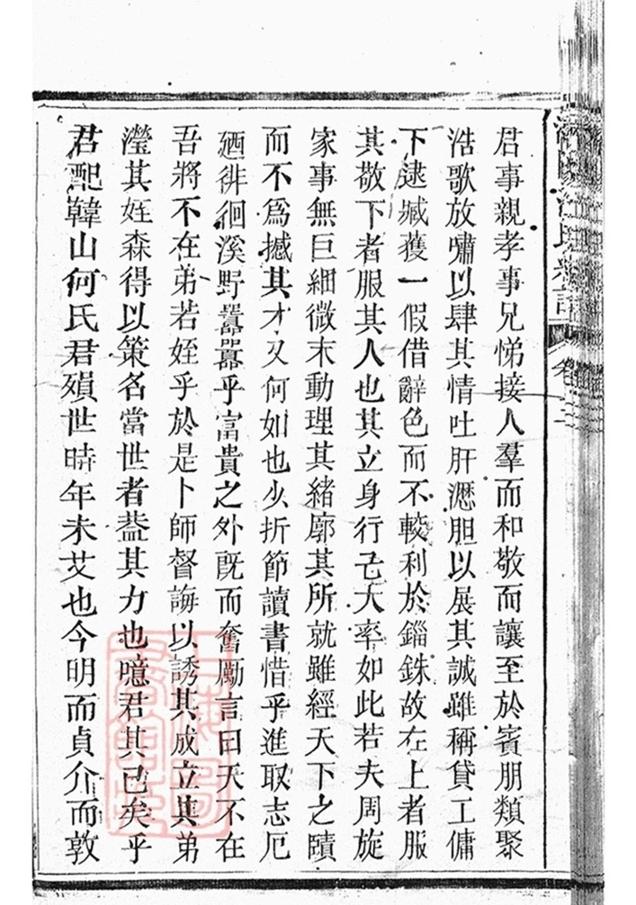 君事親孝事兄悌接人羣而和敬而讓至於賓朋類聚
浩歌放嘯以肆其情吐肝瀝胆以展其誠雖稱貸工傭
下逮臧獲一假借辭色而不較利於錙銖故在上者服
其敬下者服其人也其立身行己大率如此若夫周旋
家事無巨細微末動理其緒廓其所就雖經天下之賾
而不為撼其才又何如也少折節讀書惜乎進取志厄
廼徘徊溪野囂囂乎富貴之外既而奮勵言曰天不在
吾將不在弟若姪乎於是卜師督誨以誘其成立其弟
瀅其姪森得以策名當世者葢其力也噫君其已矣乎
君配韓山何氏君殞世時年未艾也今明而貞介而敦